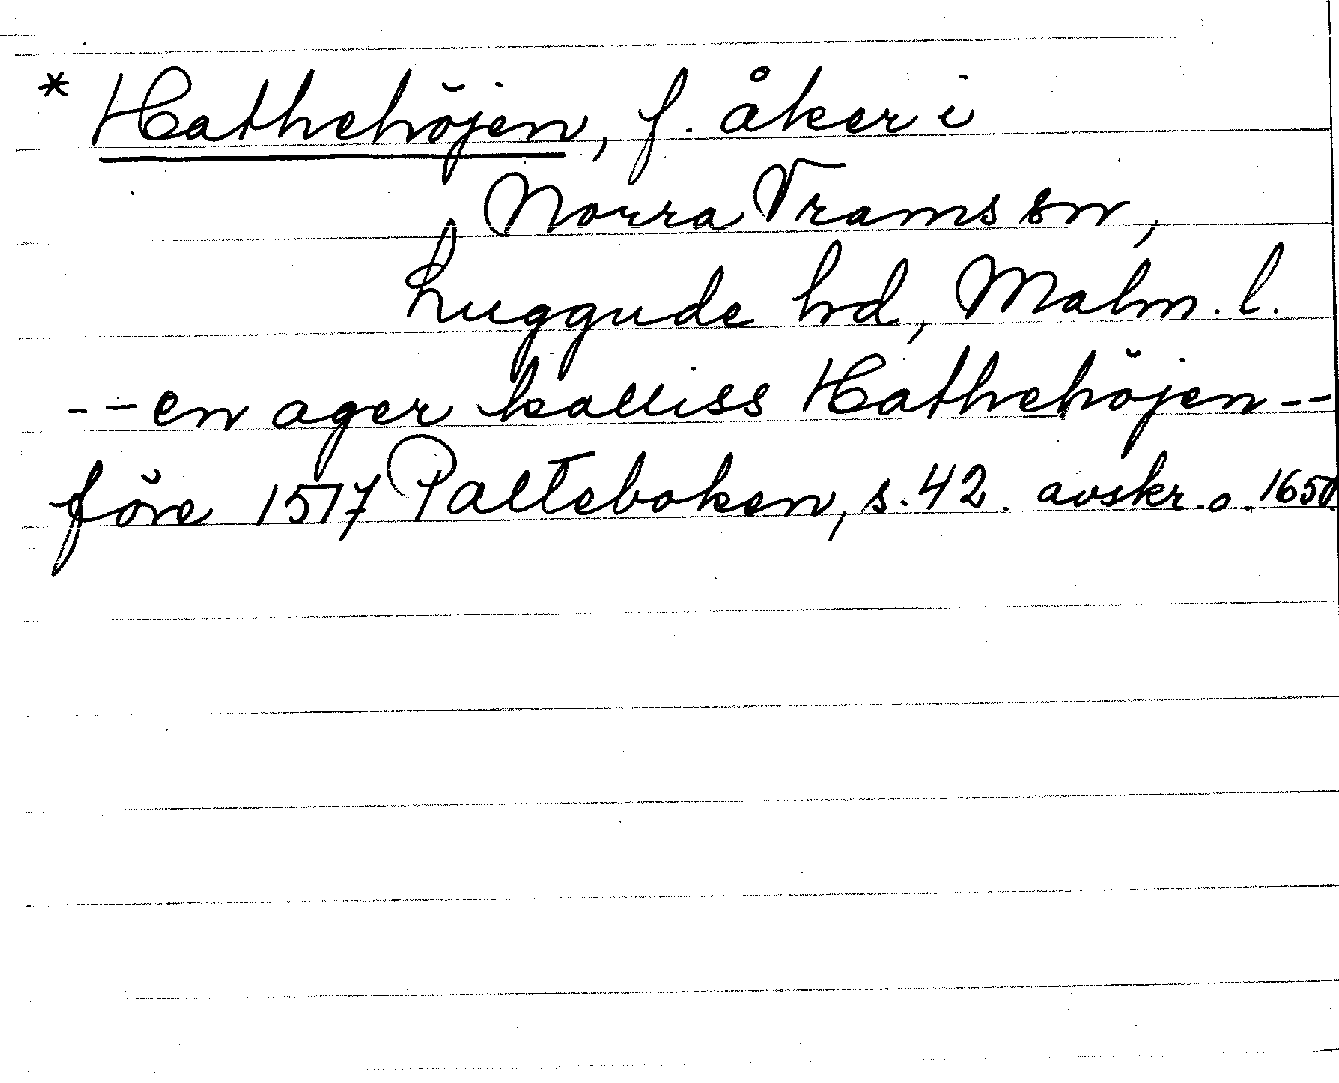 * Hathehöjen, f. åker i
Norra Vrams sn,
Luggude hd, Malm. l.
-- en ager kalliss Hathehöjen --
före 1517 Palteboken, s. 42. avskr. o. 1650.